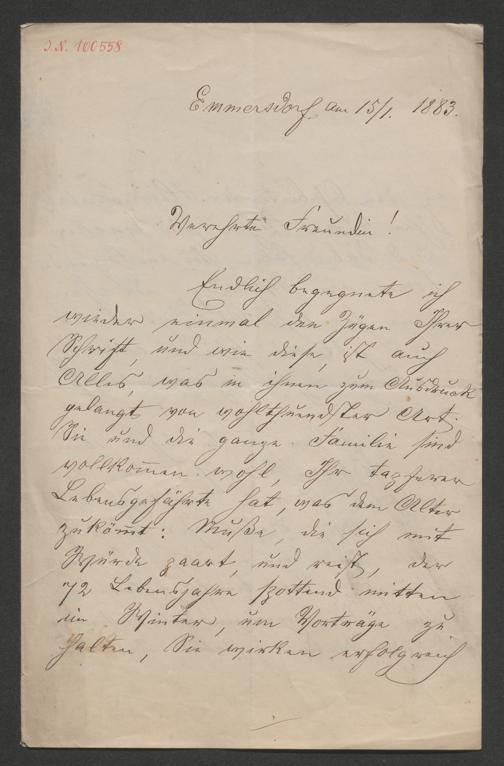 J.N. 160558
Emmersdorf am 15/1. 1883.
Verehrte Freundin!
Endlich begegnete ich
wieder einmal den Zügen Ihrer
Schrift, und wie diese, ist auch
Alles, was in ihnen zum Ausdruck
gelangt von wohlthuendster Art.
Sie und die ganze Familie sind
vollkom̄en wohl, Ihr tapferer
Lebensgefährte hat, was dem Alter
zukom̄t: Muße, die sich mit
Würde paart, und reist, der
72 Lebensjahre spottend mitten
im Winter, um Vorträge zu
halten, Sie wirken erfolgreich